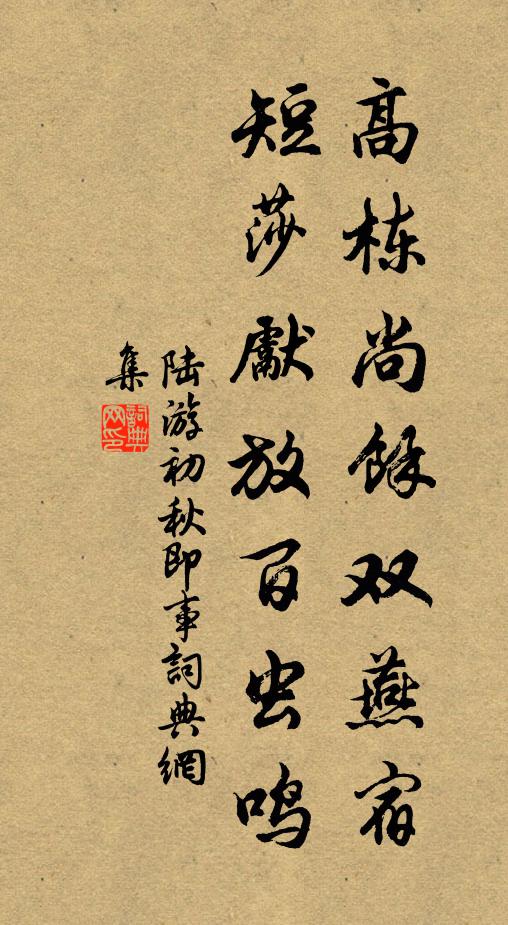 高栋尚餘双燕宿
短莎獻放百虫鸣
陆游初秋即事詞典網
集
詞典
网印